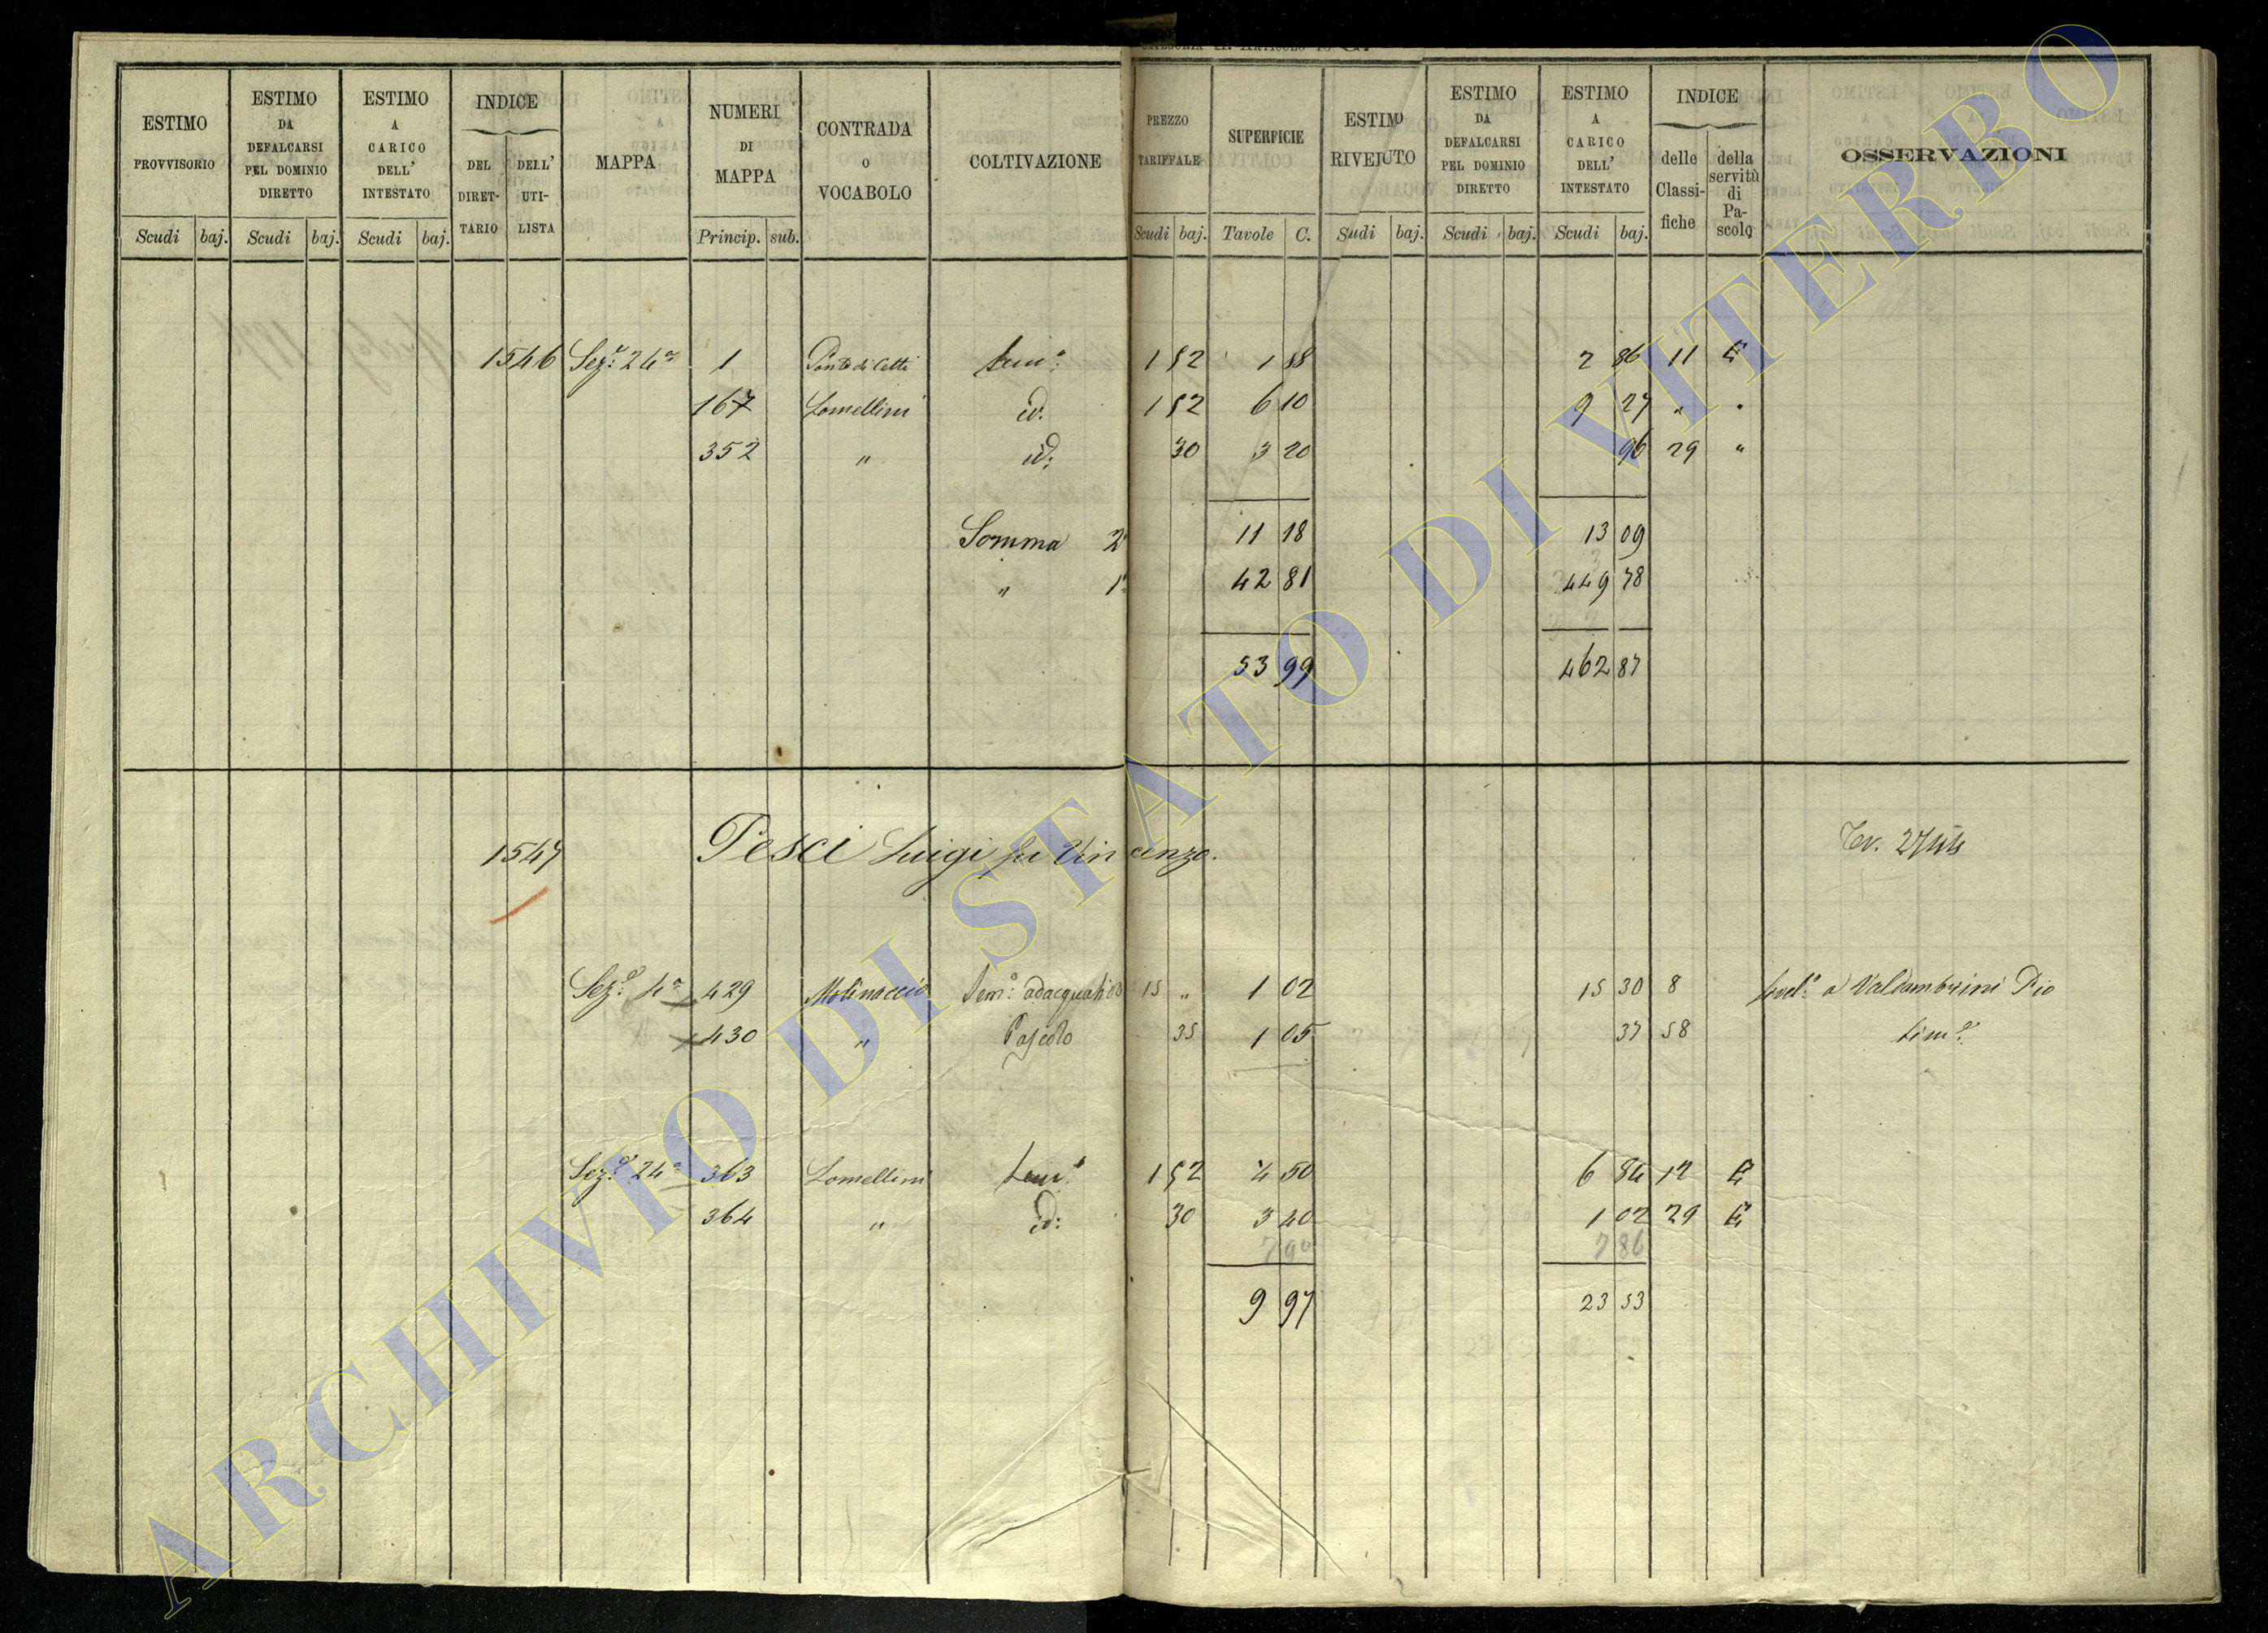 CATEGORIA
ESTIMO PROVVISORIO | ESTIMO DA DEFALCARSI PEL DOMINIO DIRETTO | ESTIMO A CARICO DELL' INTESTATO | INDICE DEL DIRETTARIO | DELL' UTILISTA | MAPPA | NUMERI DI MAPPA | CONTRADA O VOCABOLO | COLTIVAZIONE | PREZZO TARIFFALE | SUPERFICIE | ESTIMO RIVEJUTO | ESTIMO DA DEFALCARSI PEL DOMINIO DIRETTO | ESTIMO A CARICO DELL' INTESTATO | INDICE delle Classifiche | della servitù di Pascolo | OSSERVAZIONI
Scudi | baj. | Scudi | baj. | Scudi | baj. | Princip. | sub. | Scudi | baj. | Tavole | C. | Sudi | baj. | Scudi | baj. | Scudi | baj.
1546 Sez.e 24a 1 Ponte di Cetti Sem.o 1 52 1 88 2 86 11 E
167 Lomellini id. 1 52 6 10 9 27 " "
352 " id: 30 3 20 96 29 "
Somma 2a 11 18 13 09
" 1a 42 81 449 78
53 99 462 87
1547 Pesci Luigi fu Vincenzo. 
Sez.e 4a 429 Molinaccio Sem.o adacquativo 15 " 1 02 15 30 8 livel.o a Valdambrini Pio
430 " Pascolo 35 1 05 37 58 sim.e
Sez.e 24a 363 Lomellini Sem.o 1 52 4 50 6 84 12 E
364 " id: 30 3 40 1 02 29 E
7 90 7 86
9 97 23 53
ARCHIVIO DI STATO DI VITERBO